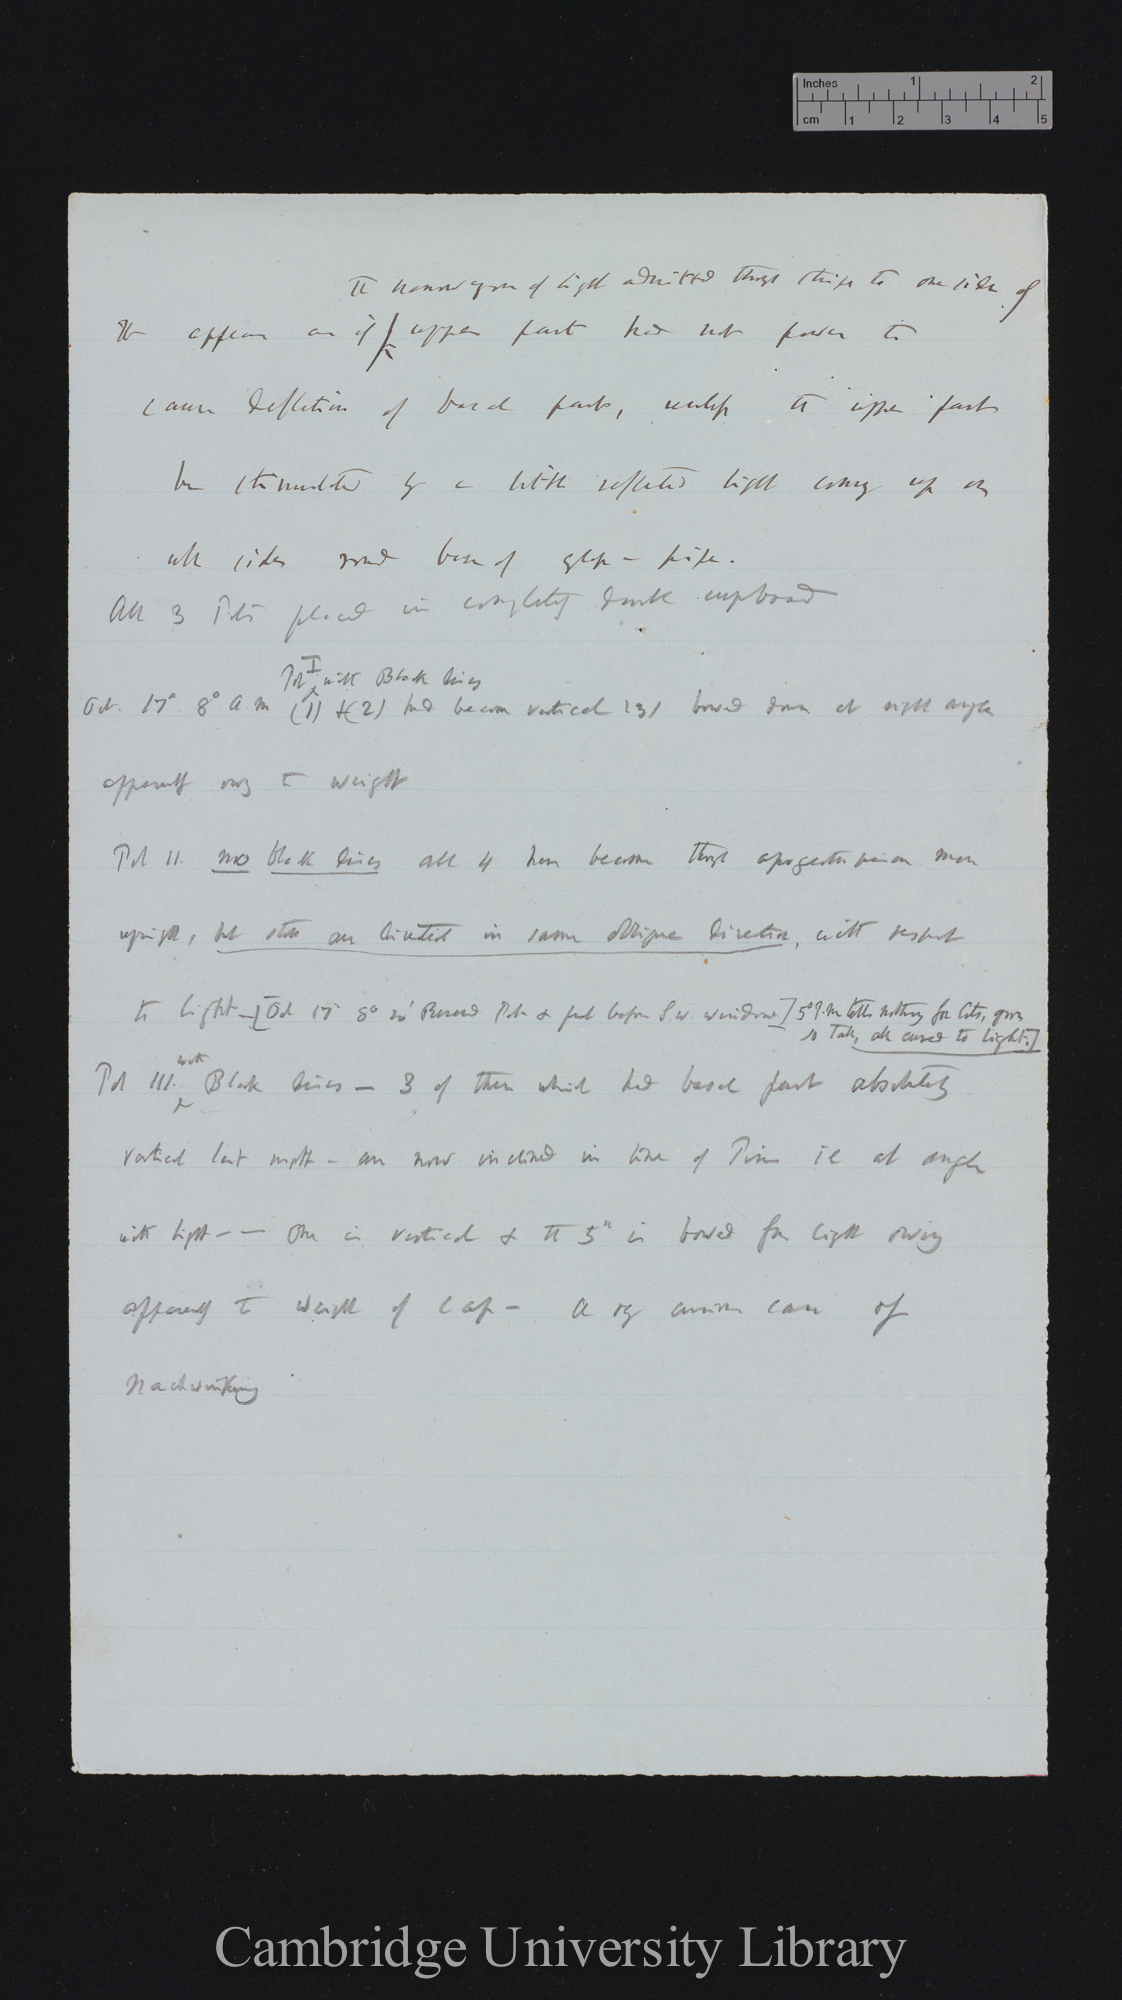 Inches 1 2
cm 1 2 3 4 5
of light admitted through stripe to one side of
It appears as if upper part has not power to
cause deflection of basal part, unless the upper part
be stimulated by a little reflected light coming up on
all sides round base of glass-pipe.
All 3 Pots placed in completely dark cupboard
Pot I with Black lines
Oct. 17° 8° a.m (1) & (2) had become vertical (3) bowed down at right angle
apparently owing to weight
Pot II. no black lines all 4 have become through apogeotropism more
upright, but still are directed in same oblique direction, with respect
to light—[Oct 17° 8° 20' Pots & put before S.W. window] 5° P.m tells nothing for
all curved to light.]
with
Pot III. Black lines — 3 of them which had basal part absolutely
vertical last night — are now inclined in line of Pins ie at angle
with light — — One is vertical & the 5th is bowed from light owing
apparently to weight of cap — A very curious case of
Nachwirkung
Cambridge University Library